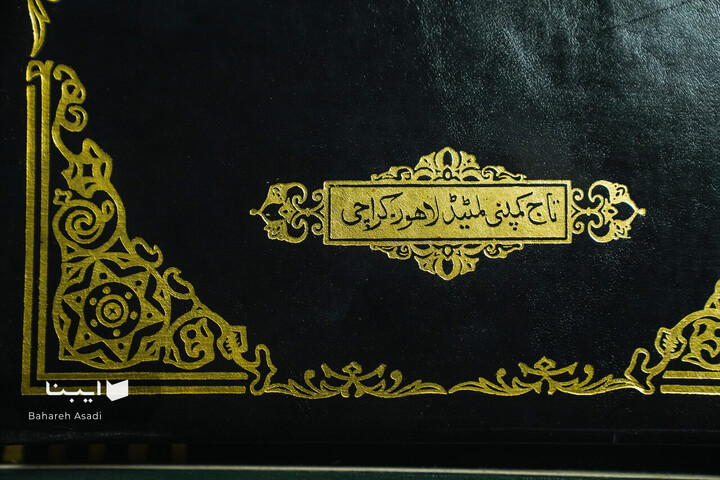 تاج کمپنی لمیٹڈ لاہور۔کراچی
ایبنا
Bahareh Asadi